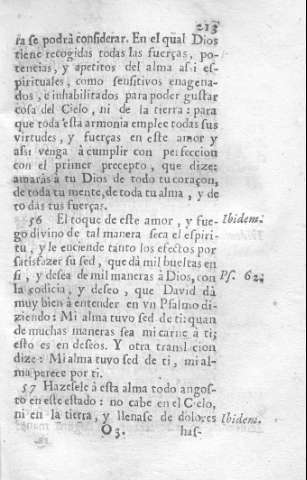 213
ra se podrà considerar. En el qual Dios
tiene recogidas todas las fuerças, po-
tencias, y apetitos del alma assi es-
pirituales, como sensitivos enagena-
dos, e inhabilitados para poder gustar
cosa del Cielo, ni de la tierra: para
que toda esta armonia emplee todas sus
virtudes, y fuerças en este amor y
assi venga à cumplir con perfeccion
con el primer precepto, que dize:
amaràs à tu Dios de todo tu coraçon,
de toda tu mente, de toda tu alma, y de
todas tus fuerças.
56 El toque de este amor, y fue- Ibidem.
go divino de tal manera seca el espiri-
tu, y le enciende tanto los efectos por
satisfazer su sed, que dà mil bueltas en
si, y desea de mil maneras à Dios, con Ps. 62.
la codicia, y deseo, que David dà
muy bien à entender en vn Psalmo di-
ziendo: Mi alma tuvo sed de ti: quan
de muchas maneras sea mi carne à ti;
esto es en deseos. Y otra translacion
dize: Mi alma tuvo sed de ti, mi al-
ma perece por ti.
57 Hazesele à esta alma todo angos-
to en este estado: no cabe en el Cielo,
ni en la tierra, y llenase de dolores Ibidem.
O 3. has-